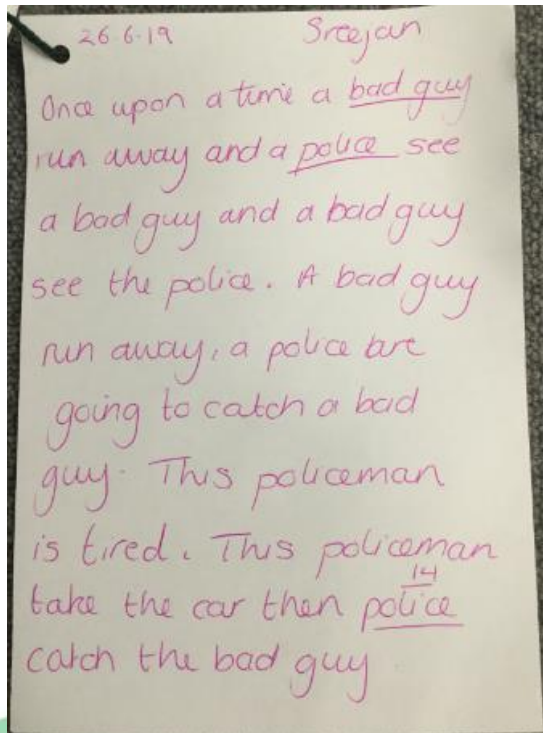 26-6-19 Sreejan
Once upon a time a bad guy
run away and a police see
a bad guy and a bad guy
see the police. A bad guy
run away, a police are
going to catch a bad
guy. This policeman
is tired. This policeman
14
take the car then police
catch the bad guy